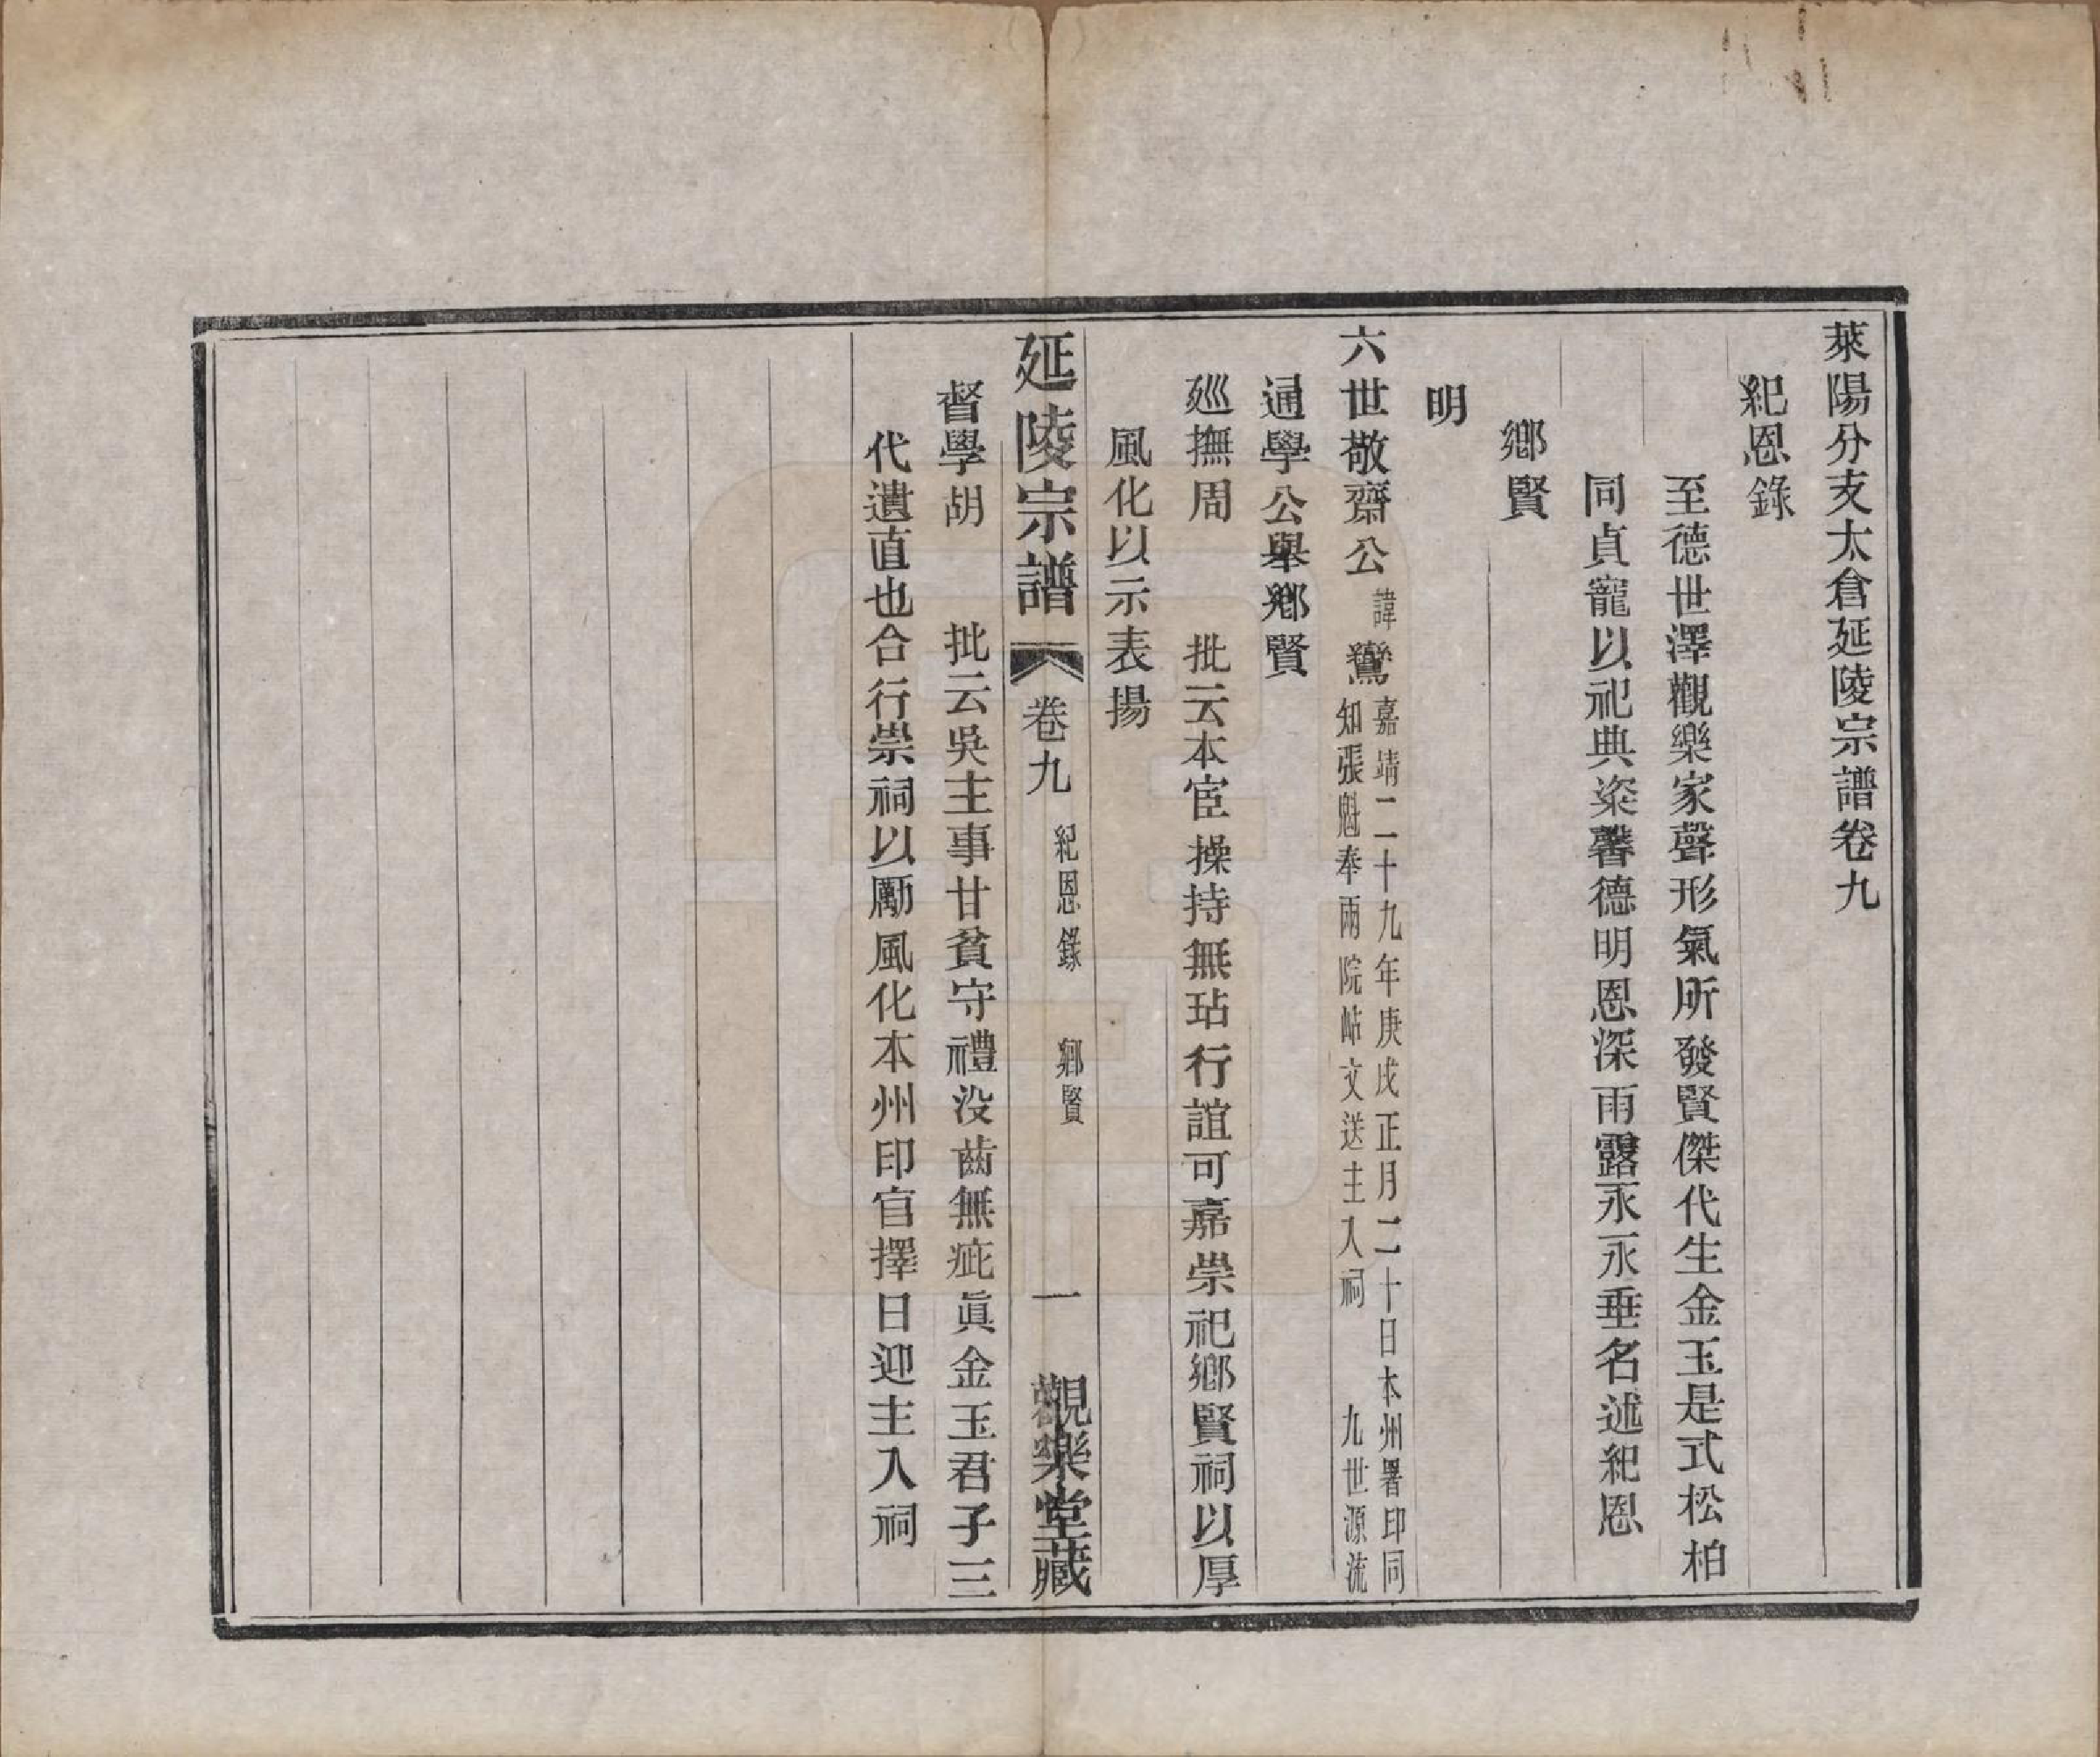 萊陽分支太倉延陵宗譜卷九
紀恩錄
至德世澤觀樂家聲形氣所發賢傑代生金玉是式松柏
同貞寵以祀典粢馨德明恩深雨露永永垂名述紀恩
鄉賢
明
六世敬齋公諱鸞嘉靖二十九年庚戌正月二十日本州署印同
知張魁奉兩院帖文送主入祠 九世源流
通學公舉鄉賢
廵撫周 批云本宦操持無玷行誼可嘉崇祀鄉賢祠以厚
風化以示表揚
延陵宗譜 卷九 紀恩錄 鄉賢 一 觀樂堂藏
督學胡 批云吳主事甘貧守禮没齒無疵眞金玉君子三
代遺直也合行崇祠以勵風化本州印官擇日迎主入祠